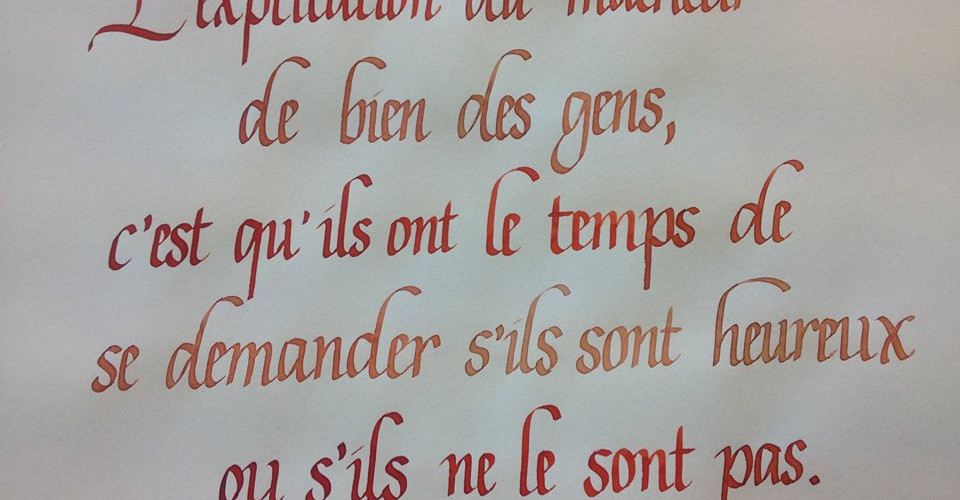 L'explication du malheur
de bien des gens,
c'est qu'ils ont le temps de
se demander s'ils sont heureux
ou s'ils ne le sont pas.